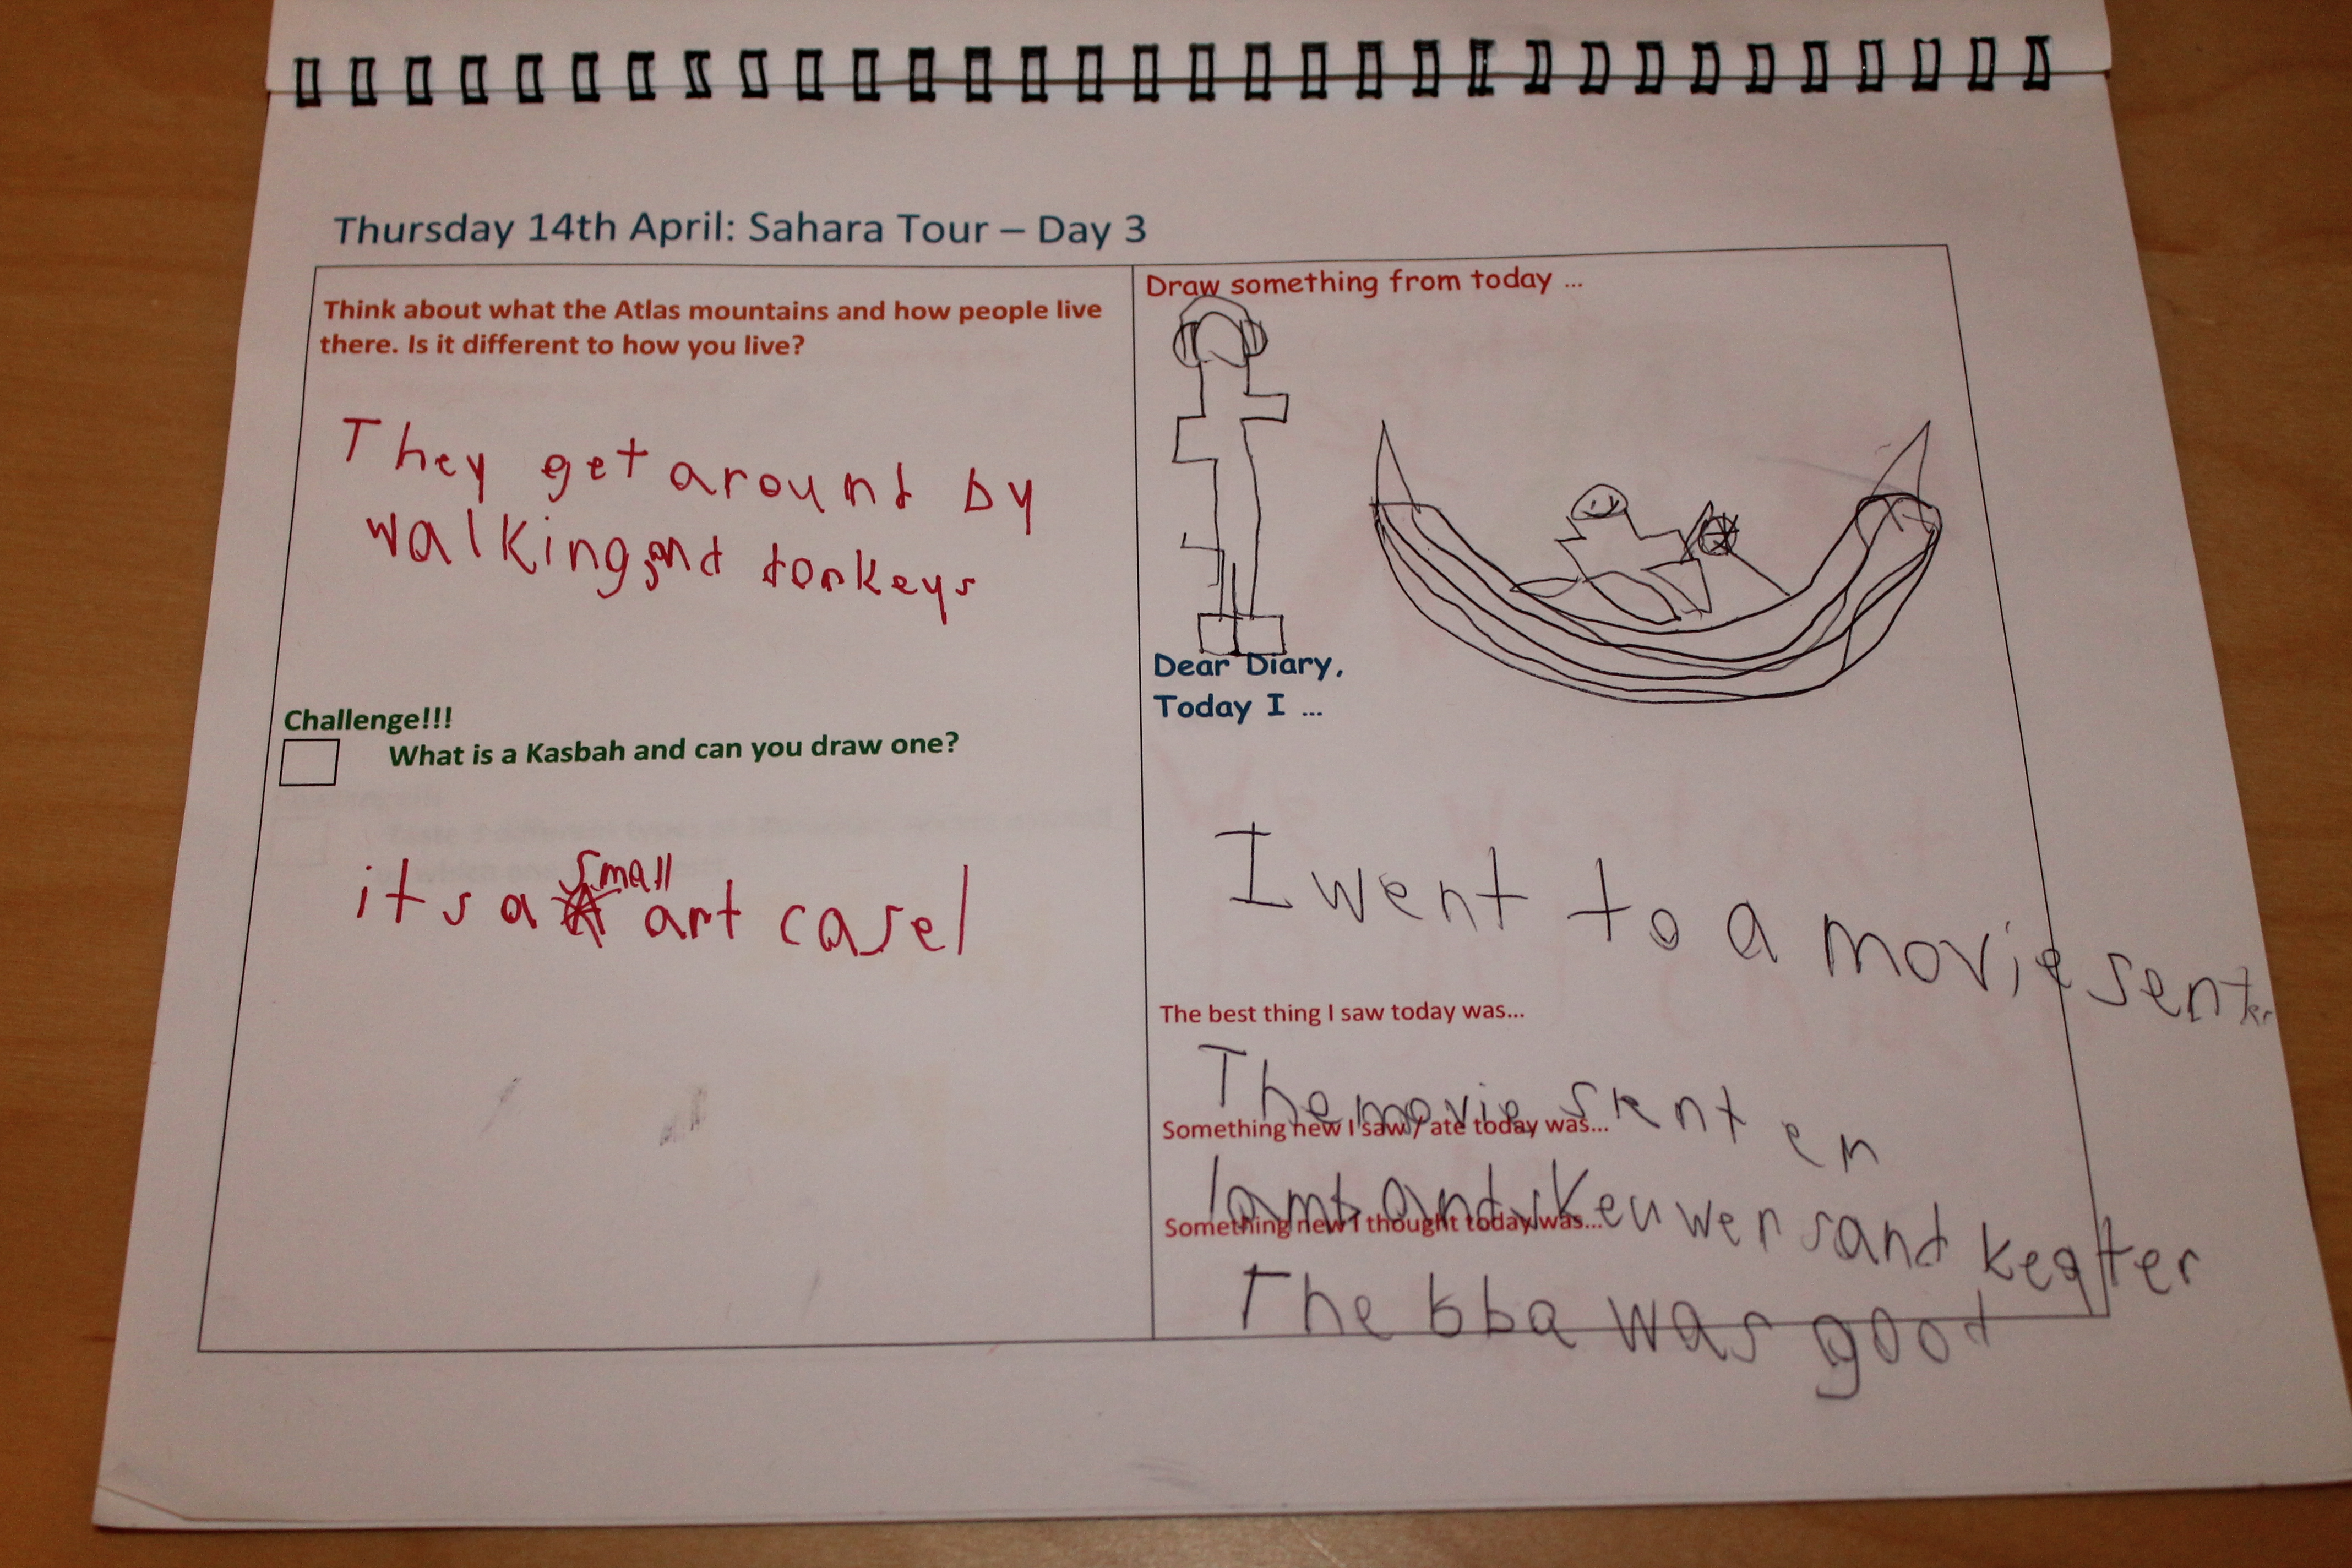 Thursday 14th April: Sahara Tour – Day 3
Think about what the Atlas mountains and how people live
there. Is it different to how you live?
They get around by
walking and donkeys
Challenge!!!
What is a Kasbah and can you draw one?
its a small art casel
Draw something from today ...
Dear Diary,
Today I ...
I went to a movie senter
The best thing I saw today was...
The movie senter
Something new I saw / ate today was...
lamb and skeuwers and
Something new I thought today was...
The bba was good